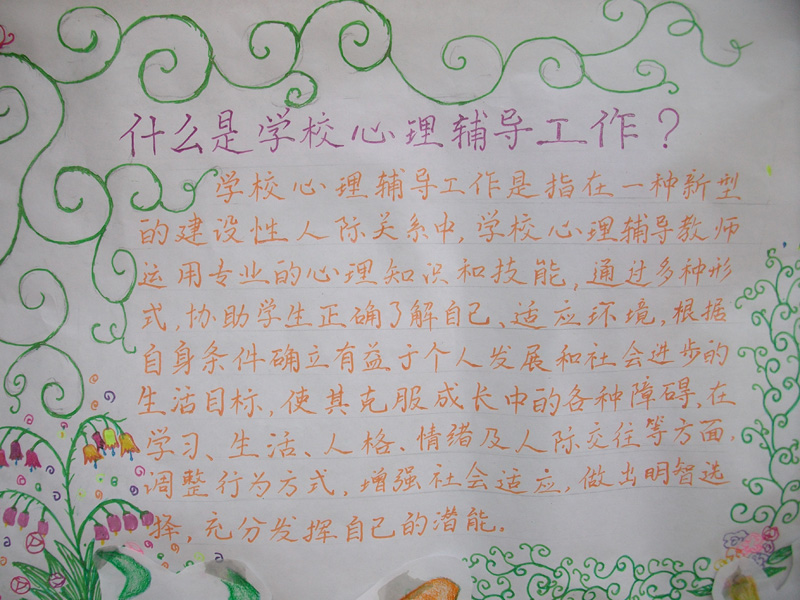 什么是学校心理辅导工作？
学校心理辅导工作是指在一种新型
的建设性人际关系中,学校心理辅导教师
运用专业的心理知识和技能,通过多种形
式,协助学生正确了解自己、适应环境,根据
自身条件确立有益于个人发展和社会进步的
生活目标,使其克服成长中的各种障碍,在
学习、生活、人格、情绪及人际交往等方面,
调整行为方式,增强社会适应,做出明智选
择,充分发挥自己的潜能。